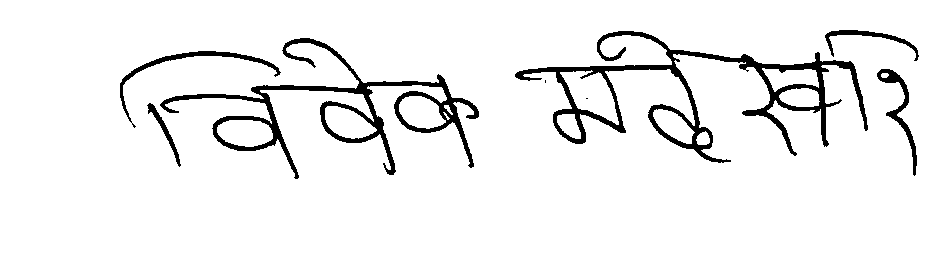 विवेक महेस्वरि